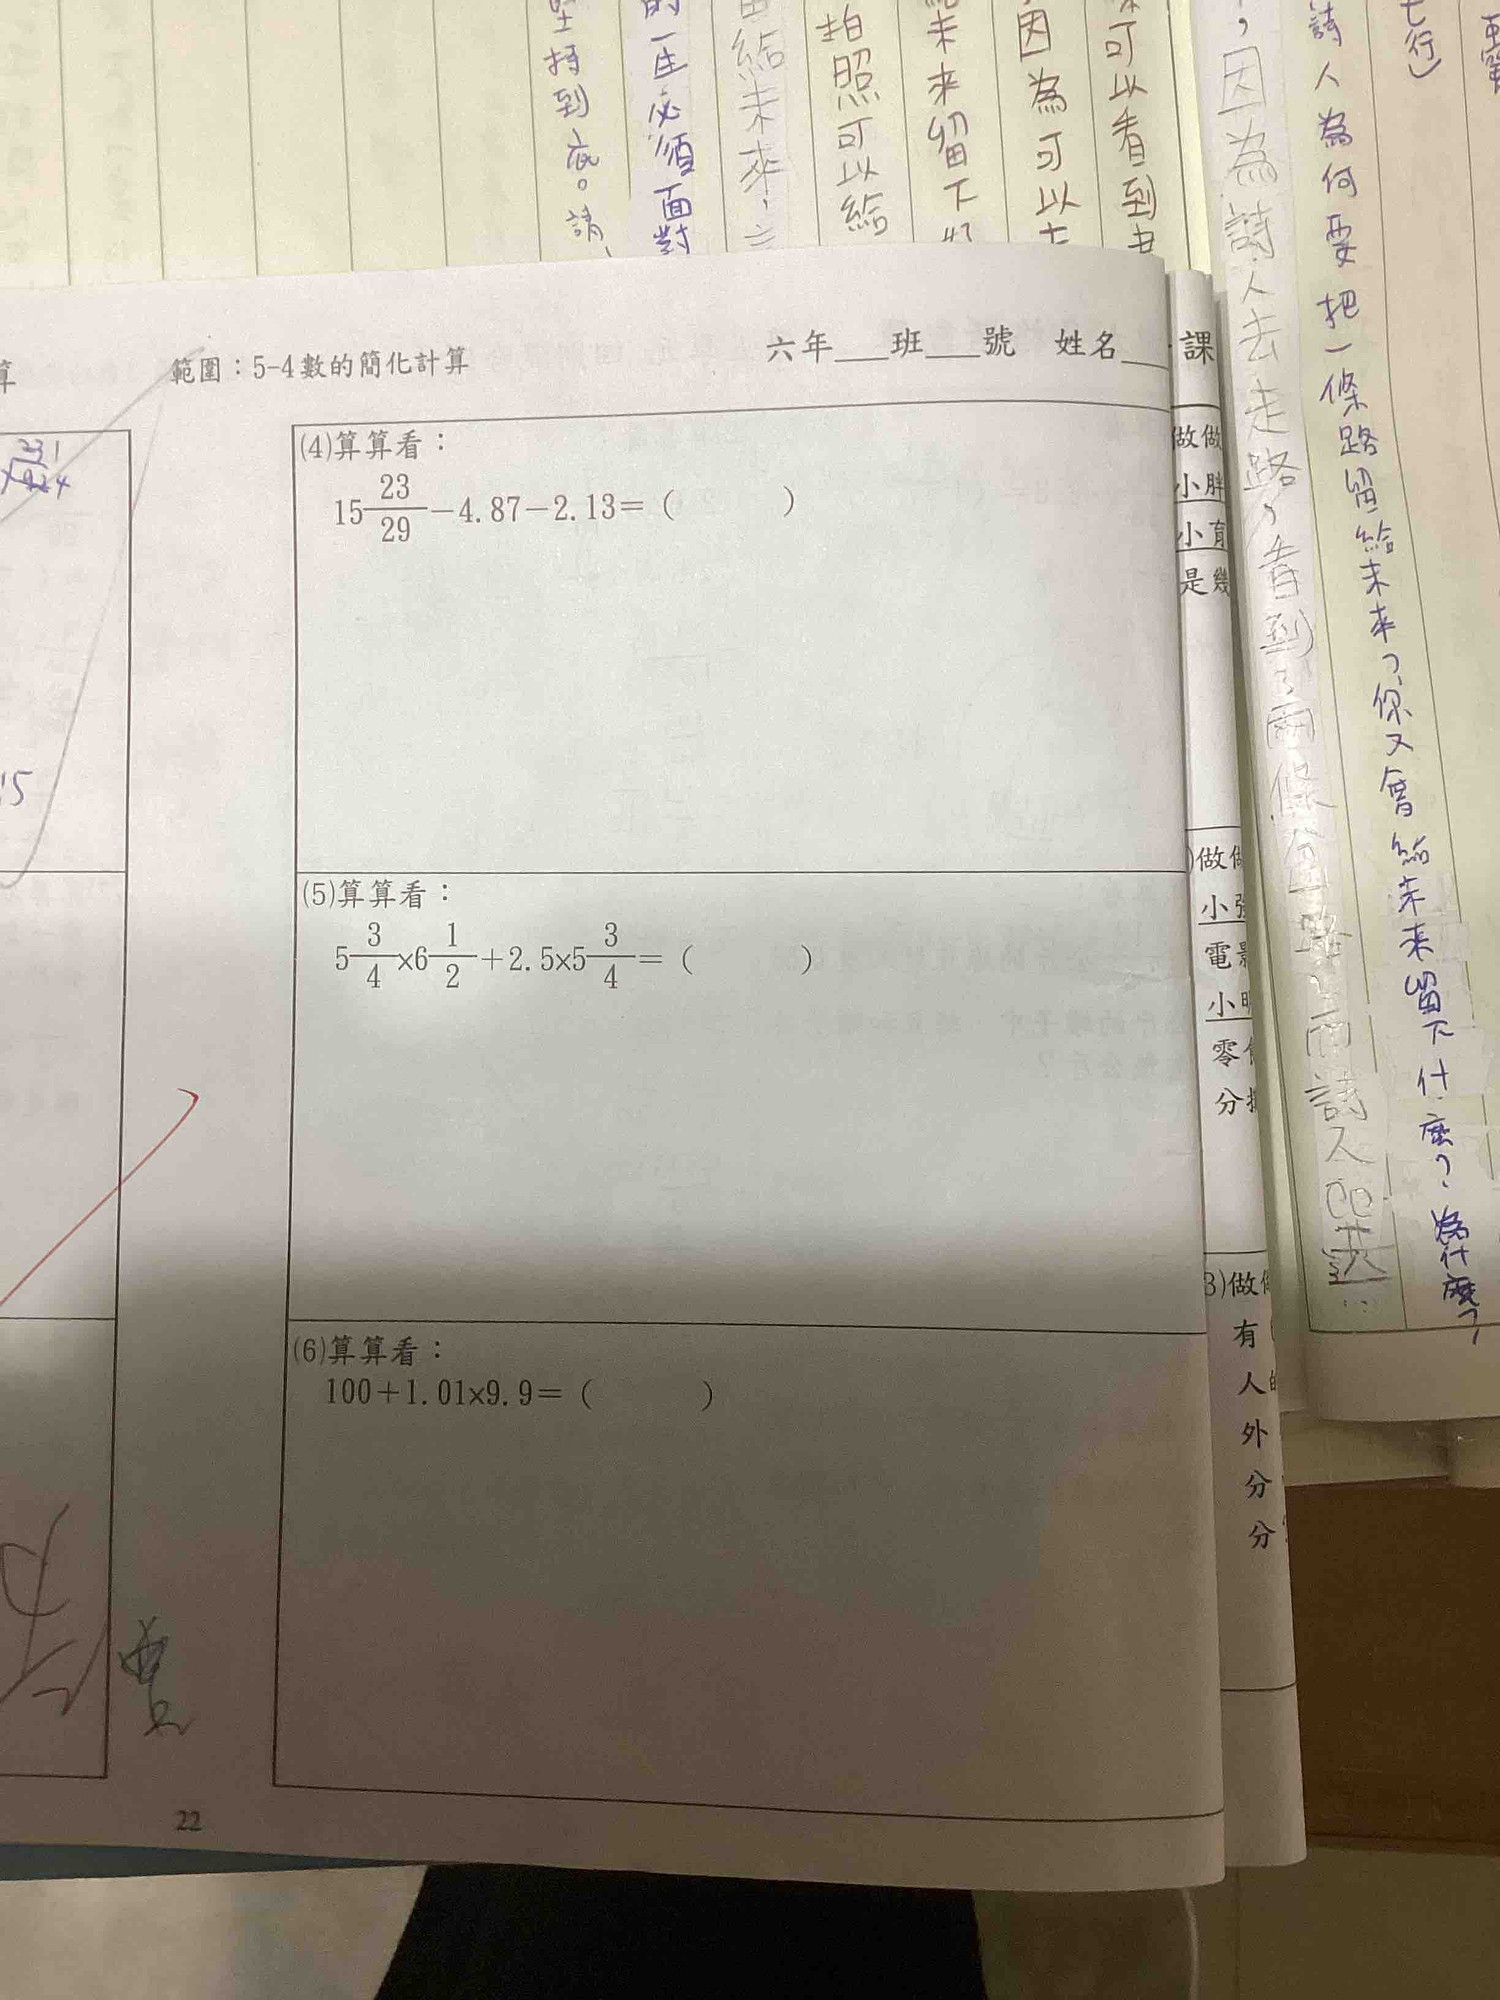 範圍：5-4數的簡化計算
六年___班___號 姓名___
(4)算算看：
15 23/29 －4.87－2.13＝（ ）
(5)算算看：
5 3/4 ×6 1/2 ＋2.5×5 3/4 ＝（ ）
(6)算算看：
100＋1.01×9.9＝（ ）
22
算
15
課
做做
小胖
小育
是幾
做做
小張
電影
小明
零
分
3)做做
有
人的
外
分
分
七行)
詩人為何要把一條路留給未來?你又會給未來留下什麼?為什麼?
，因為詩人去走路，看到了兩條分路，而詩人
可以看到
因為可以
未來留下
拍照可以給
留給未來，
的一生必須面對
堅持到底。請